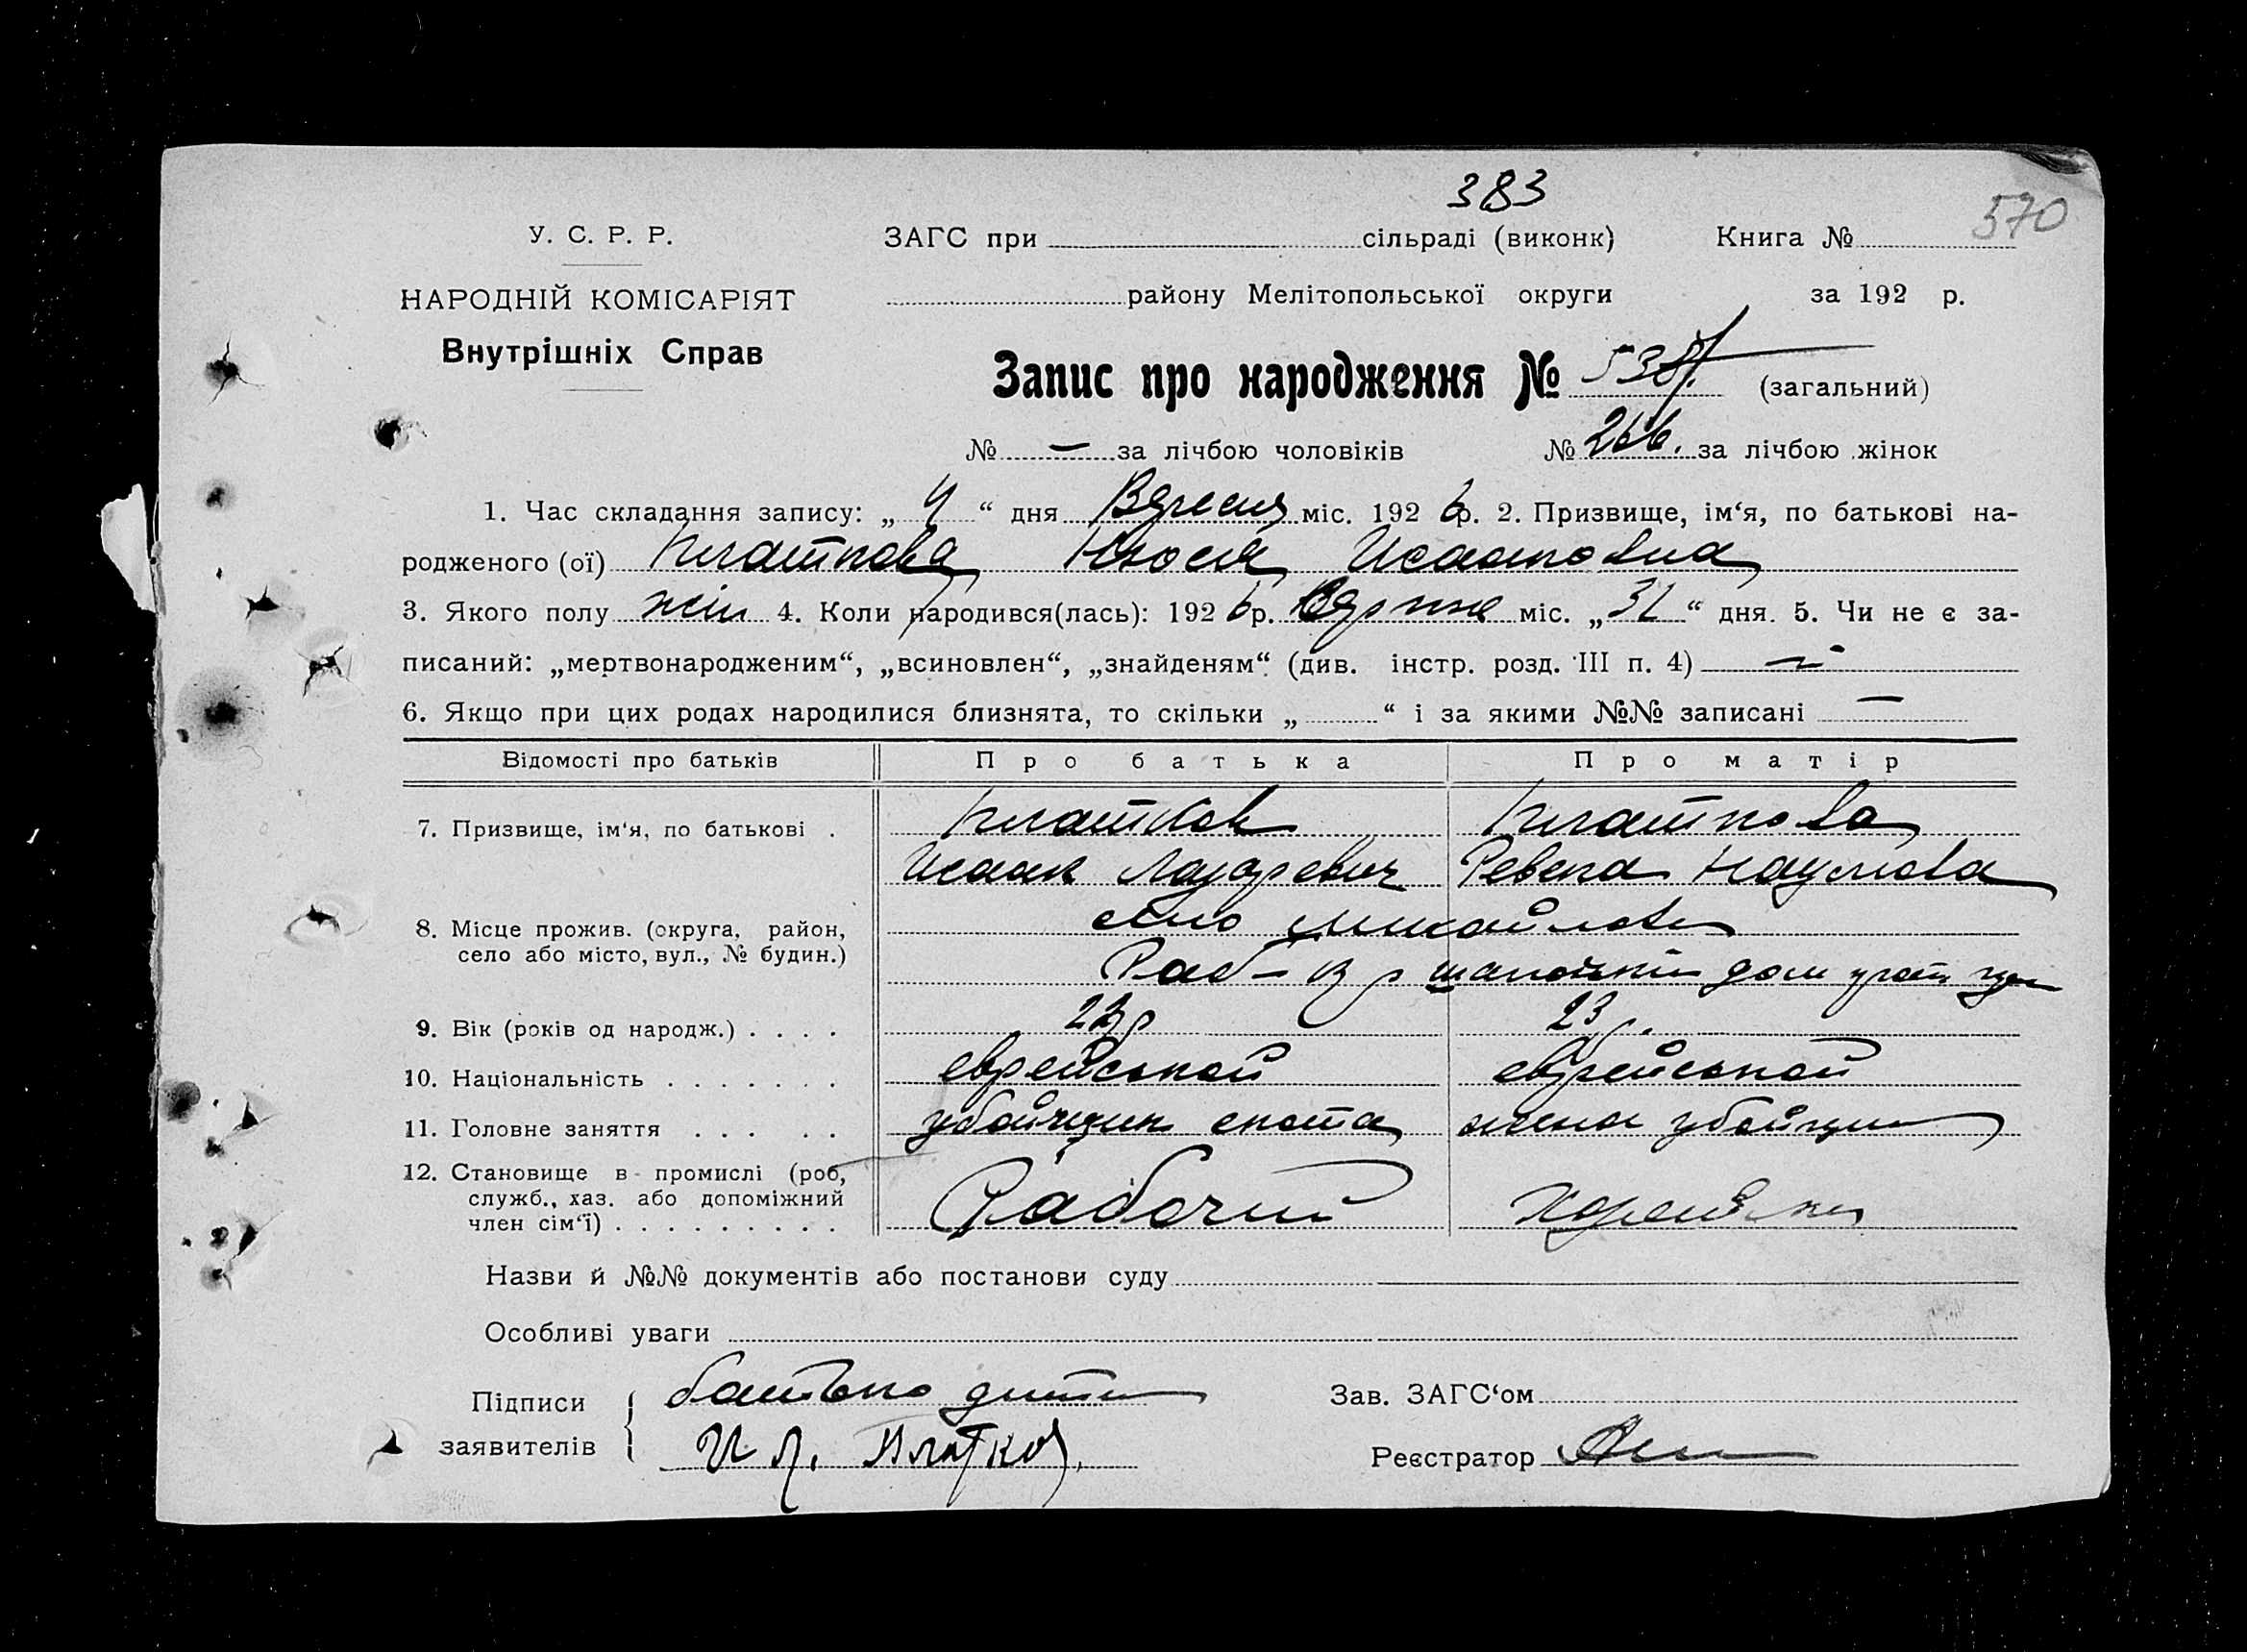 383
570
У. С. Р. Р.
ЗАГС при сільраді (виконк) Книга №
НАРОДНІЙ КОМІСАРІЯТ
району Мелітопольської округи за 192 р.
Внутрішніх Справ
Запис про народження № 538 (загальний)
№ — за лічбою чоловіків № 266. за лічбою жінок
1. Час складання запису: „ 4 “ дня Вересня міс. 192 6 р. 2. Призвище, ім‘я, по батькові на-
родженого (ої) Платкова Нюся Исааковна
3. Якого полу жін 4. Коли народився(лась): 192 6 р. міс. „ 31 “ дня. 5. Чи не є за-
писаний: „мертвонародженим“, „всиновлен“, „знайденям“ (див. інстр. розд. III п. 4) —
6. Якщо при цих родах народилися близнята, то скільки „ “ і за якими №№ записані —
Відомості про батьків Про батька Про матір
7. Призвище, ім‘я, по батькові . Платков Платкова
Исаак Лазаревич Ревека Наумова
8. Місце прожив. (округа, район, село Михайловка
село або місто, вул., № будин.) дом
9. Вік (років од народж.) . . . . 23 р.
10. Національність . . . . . . . еврейськой еврейськой
11. Головне заняття . . . . . убойщик скота жена убойщик
12. Становище в промислі (роб,
служб., хаз. або допоміжний Рабочий
член сім‘ї) . . . . . . . . .
Назви й №№ документів або постанови суду
Особливі уваги
Підписи батько дити Зав. ЗАГС‘ом
заявителів И Л. Платков Реєстратор